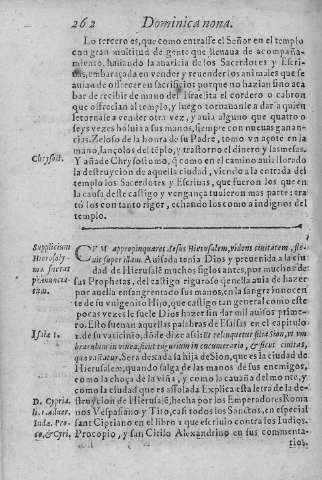 262 Dominica nona.
Lo tercero es, que como entrasse el Señor en el templo
con gran multitud de gente que lleuaua de acompaña-
miento, hallando la auaricia de los Sacerdotes y Escri-
uas, embaraçada en vender y reuender los animales que se
auian de offrecer en sacrificios porque no hazian sino aca
bar de recibir de mano del Israelita el cordero o cabron
que offrecian al templo, y luego tornauanle a dar a quien
letornase a vender otra vez, y auia alguno que quatro o
seys vezes boluia a sus manos, siempre con nueuas ganan-
cias. Zeloso de la honra de su Padre, tomo vn açote en la
mano, lançolos del tēplo, y trastorno el dinero y las mesas.
Chrysost.
Y añade Chrysostomo, q̄ como en el camino auia llorado
la destruycion de aquella ciudad, viendo a la entrada del
templo los Sacerdotes y Escriuas, que fueron los que en
la causa deste castigo y vengança tuuieron mas parte: tra
tó los con tanto rigor, echando los como a indignos del
templo.
Supplicium
Hierosaly-
mæ futuræ
prænuncia-
tum.
CVM appropinquaret Iesus Hierusalem, videns ciuitatem, fle-
uit super illam. Auisada tenia Dios y preuenida a la ciu
dad de Hierusalē muchos siglos antes, por muchos de
sus Prophetas, del castigo riguroso q̄ en ella auia de hazer
por auella ensangrentado sus manos, en la sangre innocen
te de su vnigenito Hijo, que castigo tan general como este
pocas vezes le suele Dios hazer sin dar mil auisos prime-
Isaiæ 1.
ro. Esto suenan aquellas palabras de Esaias en el capitulo
1. de su vaticinio, dōde dize assi: Et relinquetur filia Sion, vt vm
braculum in vinea, sicut tugurium in cucumerario, & sicut ciuitas,
quæ vastatur. Sera dexada la hija de Sion, que es la ciudad de
Hierusalem, quando salga de las manos de sus enemigos,
como la choça de la viña, y como la cauaña del monte, y
como la ciudad que es assolada Explica esta letra de la de-
D. Cypria.
li. 1. aduer.
Iuda. Pro-
so, & Cyri,
struycion de Hierusalē, hecha por los Emperadores Roma
nos Vespasiano y Tito, casi todos los Sanctos, en especial
sant Cipriano en el libro 1 que escriuio contra los Iudios.
Procopio, y san Cirilo Alexandrino en sus commenta-
rios,